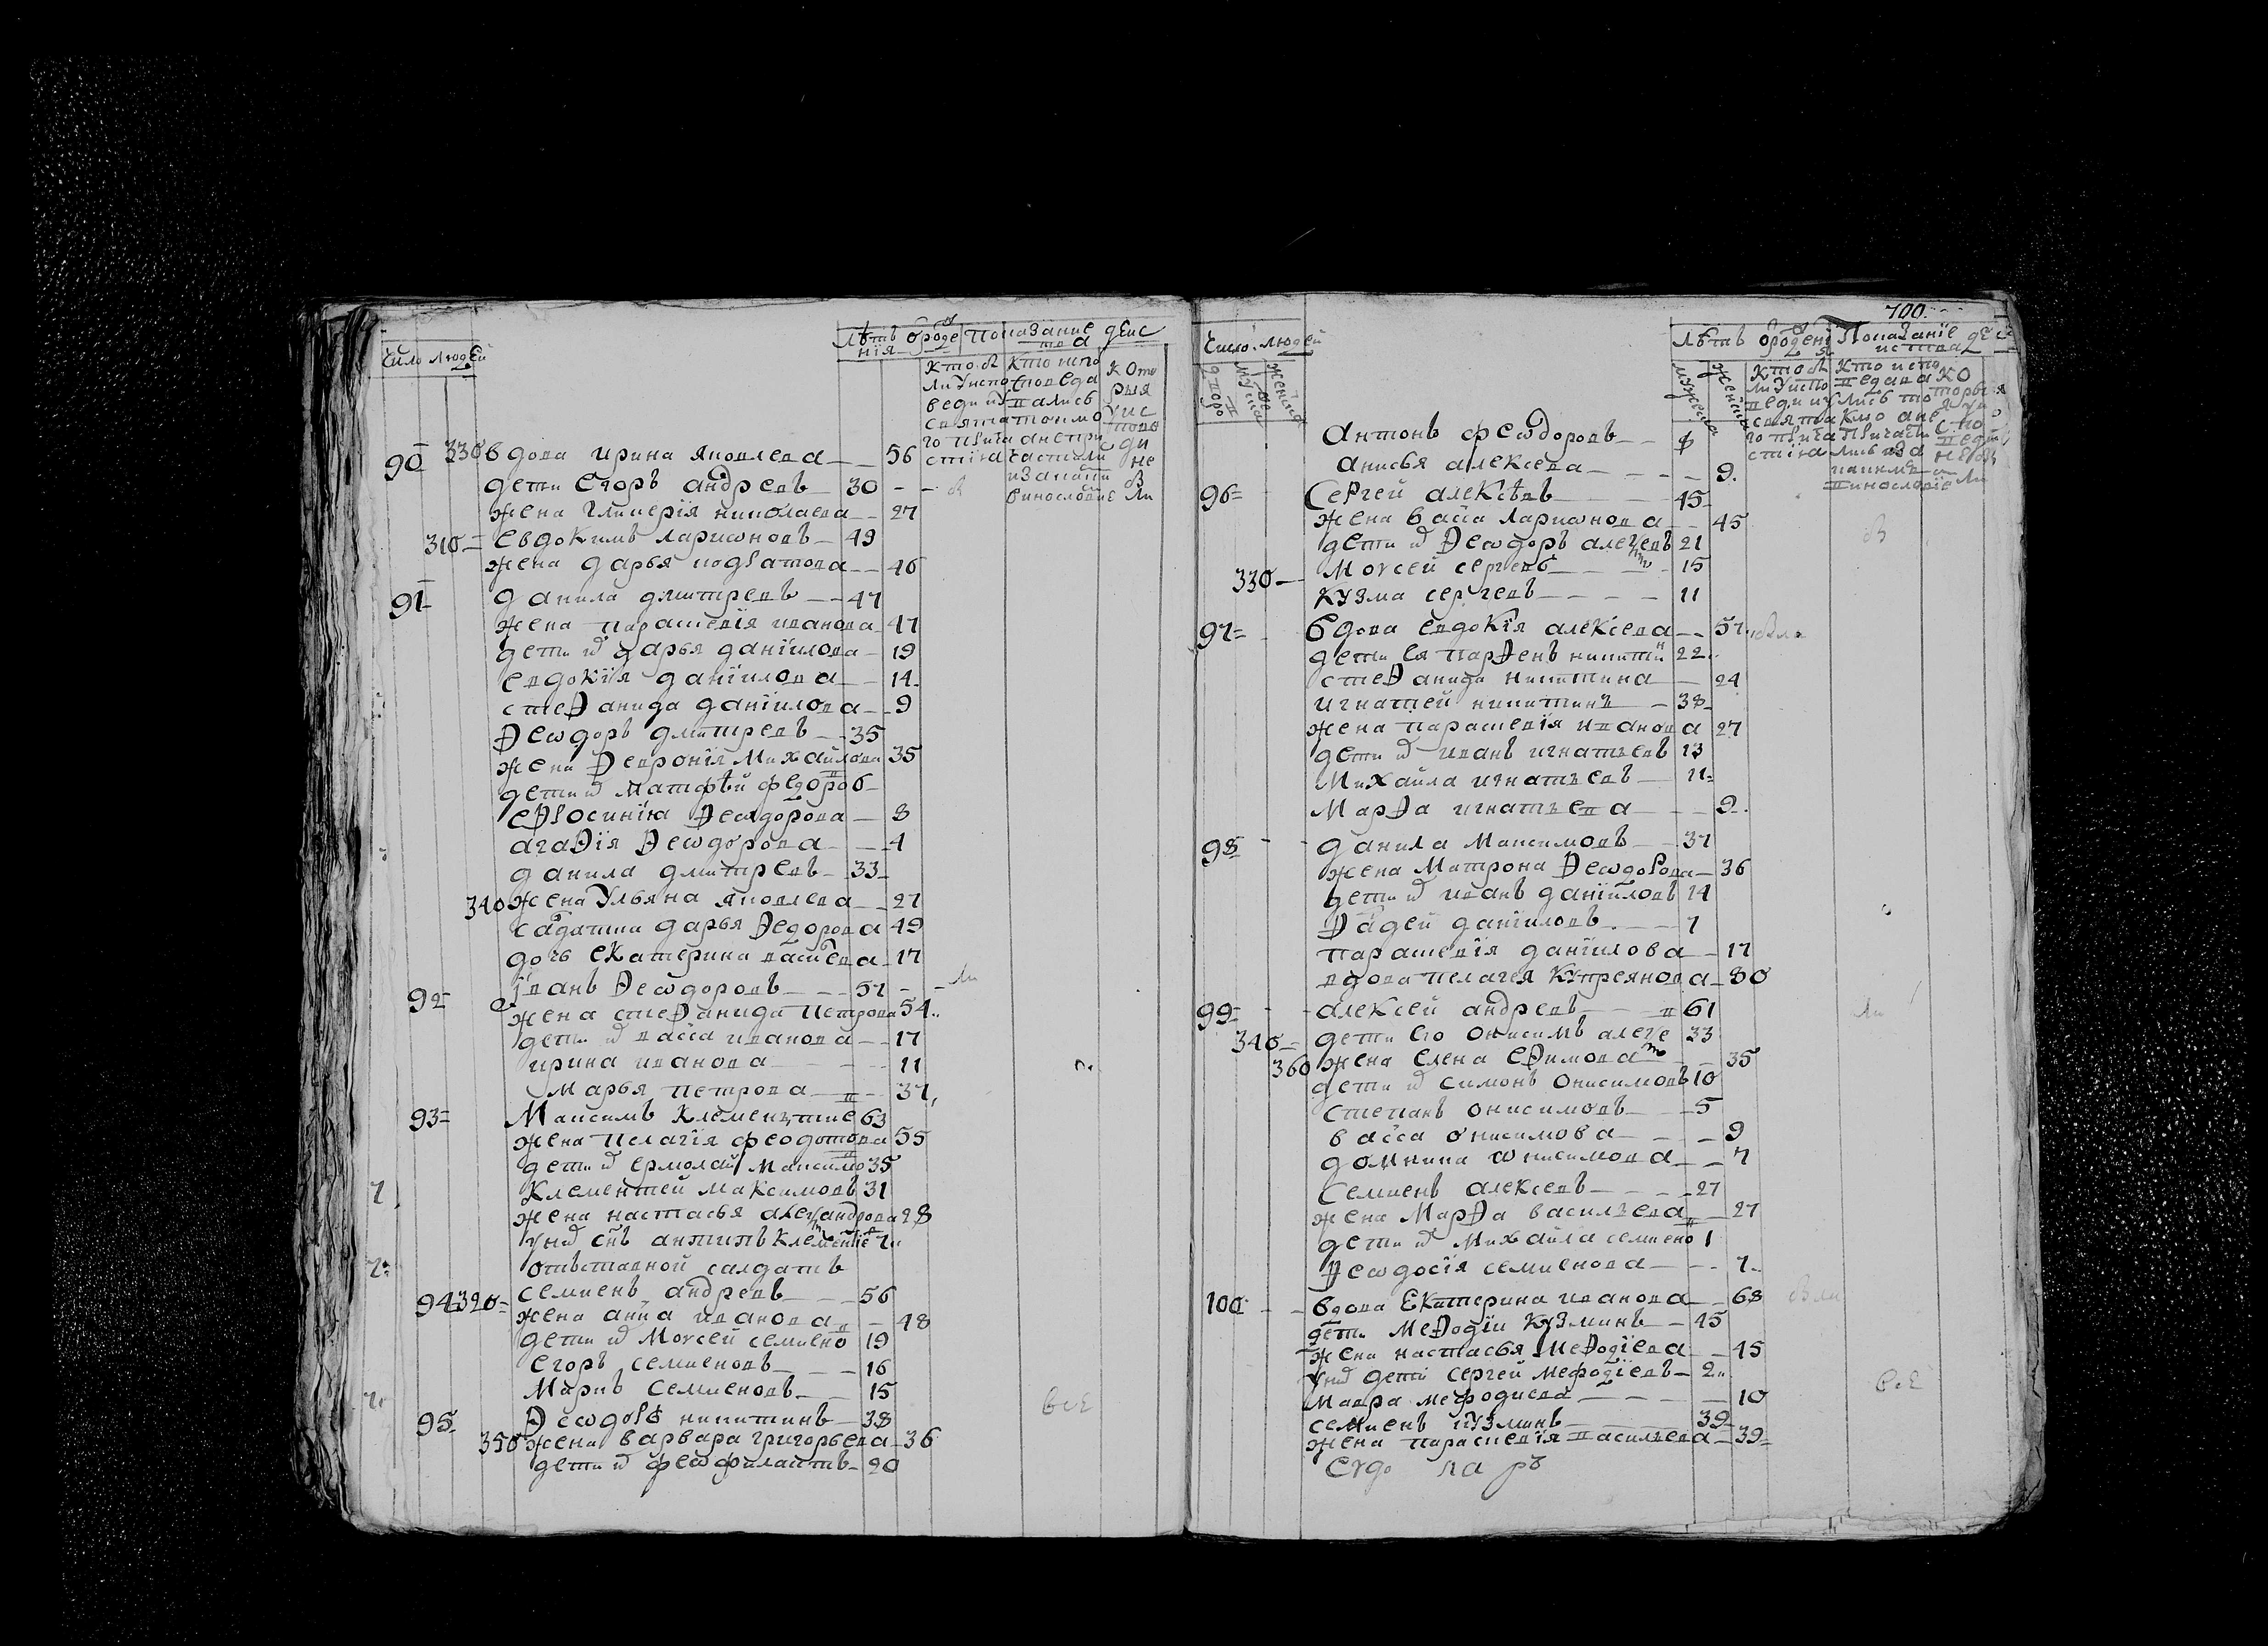 Число людей
Лѣтъ от роде
нія
Показание деис
тва
Кто бы
ли у испо
веди и
святаго
Кто испо
ведалисъ
а не при
частили
Кото
рыя
у ис
пове
ди
не
бы
ли
90 330 вдова ирина яковлева 56
дети Егоръ андреевъ 30
жена гликерія николаева 27
310 Евдокимъ ларионовъ 49
жена дарья 46
91 данила дмитревъ 47
жена параскевія иванова 47
дети их дарья даніилова 19
евдокїя даніилова 14
стеѳанида даніилова 9
Ѳеѡдоръ дмитревъ 35
жена Ѳевронїя Михайлова 35
дети их Матфѣй федоров 6
еѳросинїя Ѳеѡдорова 8
агаѳїя Ѳеѡдорова 4
данила дмитревъ 33
340 жена Ульяна яковлева 27
салдатки дарья Ѳедорова 49
дочь екатерина васильева 17
92 іванъ Ѳеѡдоровъ 57
жена стеѳанида петрова 54
дети их васса иванова 17
ирина иванова 11
Марья петрова 37
93 Максимъ Клементие 63
жена пелагїя феодотова 55
дети их ермолай Максимо 35
Клементей максимовъ 31
жена настасья александрова 28
у них снъ антипъ Клементіе
отъставной салдатъ
94 320 семиенъ андреевъ 56
жена анна иванова 48
дети их Моѵсей семиено 19
егоръ семиеновъ 16
Маркъ семиеновъ 15
95 Ѳеѡдоръ никитинъ 38
все
350 жена варвара григорьева 36
дети их феѡфилактъ 20
700
Число людей
Лѣтъ от роденї
я
Показанїе деис
ства
двор
мужеска
женска
Антонъ феѡдоровъ
анисья алексева 9
96 Сергей алексѣевъ 45
жена васса ларионова 45
дети их Ѳеѡдоръ алексеевъ 21
330 Моѵсей сергеевъ 15
кузма сергеевъ 11
97 вдова евдокїя алексева 57
дети ея парѳенъ никитин 22
стеѳанида никитина 24
игнатей никитинъ 38
жена параскевія иванова 27
дети их иванъ игнатьевъ 13
Михайла игнатьевъ 11
Марѳа игнатьева 9
98 данила Максимовъ 37
жена Матрона Ѳеѡдорова 36
дети их иванъ даніиловъ 14
Ѳадей даніиловъ 7
параскевїя даніилова 17
вдова пелагея Купреянова 80
99 алексей андреевъ 61
340 дети его онисимъ алексе 33
360 жена елена еѳимова 35
дети их симонъ онисимовъ 10
степанъ онисимовъ 5
васса онисимова 9
домника ѡнисимова 7
Семиенъ алексеевъ 27
жена Марѳа васильева 27
дети их Михайла семиено 1
Ѳеѡдосїя семиенова 7
100 вдова Екатерина иванова 68
дети Меѳодїи Кузминъ 45
жена настасья Меѳодїева 45
у них дети сергей мефодїевъ 2
Мавра мефодиева 10
все
семиенъ кузминъ 39
жена параскевїя васильева 39